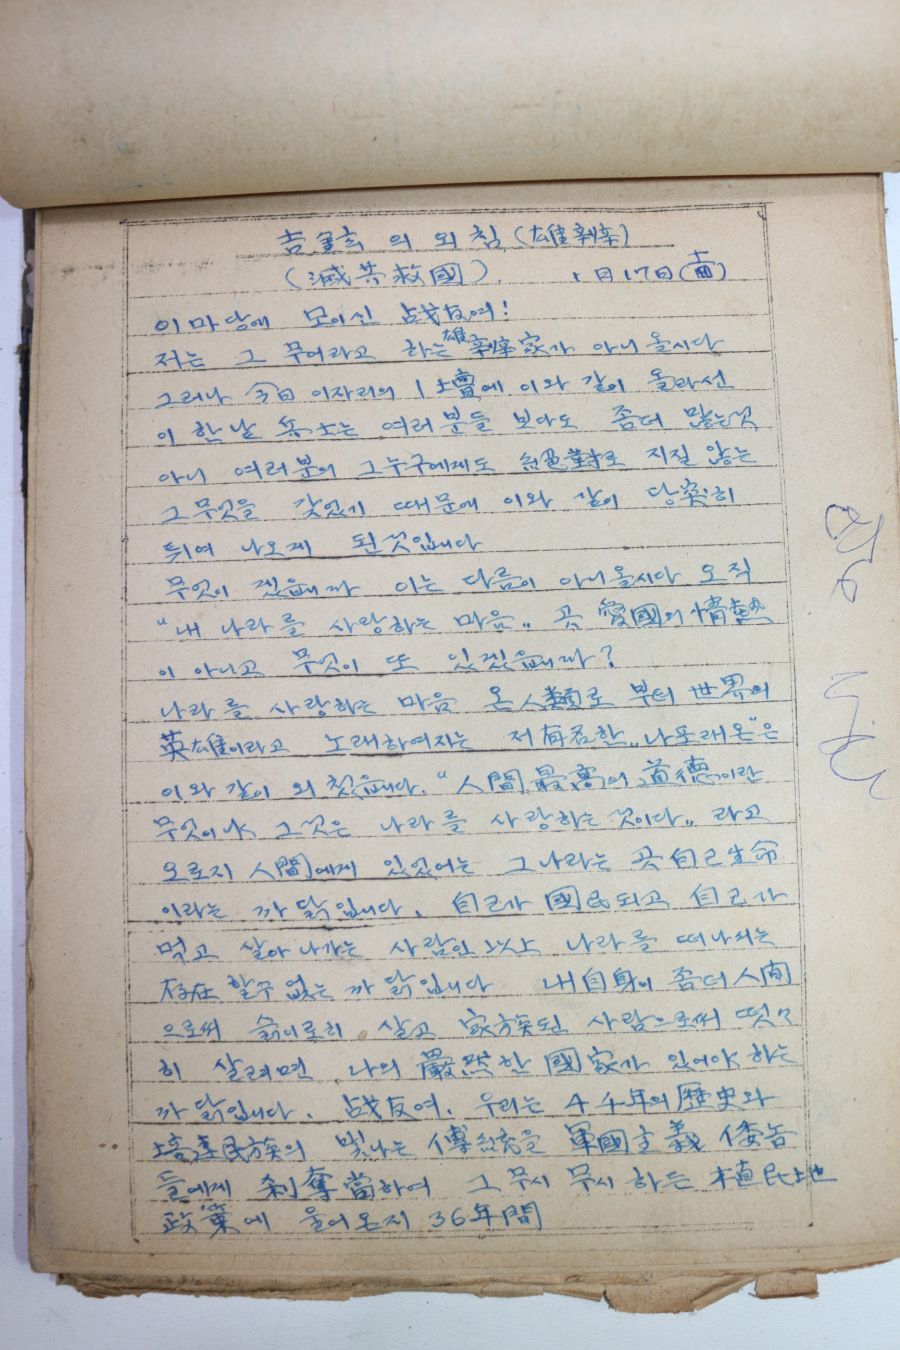 의 외침 (雄辯)
(滅共救國). 1月17日
이 마당에 모이신 战友여!
저는 그 무어라고 하는 雄辯家가 아니올시다
그러나 今日 이자리의 1 壇에 이와 같이 올라선
이 한낱 兵士는 여러분들 보아도 좀더 많는것
아니 여러분의 그누구에게도 絕對로 지질 않는
그무엇을 갖었기 때문에 이와 같이 당돌히
튀여 나오게 된것입니다
무엇이 겠읍니까 이는 다름이 아니올시다 오직
"내 나라를 사랑하는 마음„ 곳 愛國의 情熱
이 아니고 무엇이 또 있겠읍니까?
나라를 사랑하는 마음 온 人類로 부터 世界의
英雄이라고 노래하여지는 저 有名한 „나포레온"은
이와 같이 외쳤읍니다. "人間 最高의 道德이란
무엇이냐 그것은 나라를 사랑하는 것이다„ 라고
오로지 人間에게 있었어는 그나라는 곳 自己生命
이라는 까닭입니다. 自己가 國民되고 自己가
먹고 살아 나가는 사람인 以上 나라를 떠나서는
存在 할수 없는 까닭입니다 내 自身이 좀더 人间
으로써 살고 家族된 사람으로써 떳々
히 살려면 나의 嚴然한 國家가 있어야 하는
까닭입니다. 战友여. 우리는 4千年의 歷史와
民族의 빛나는 傳統을 軍國主義 倭놈
들에게 剝奪當하여 그 무시무시 하든 植民地
政策에 울어온지 36年間